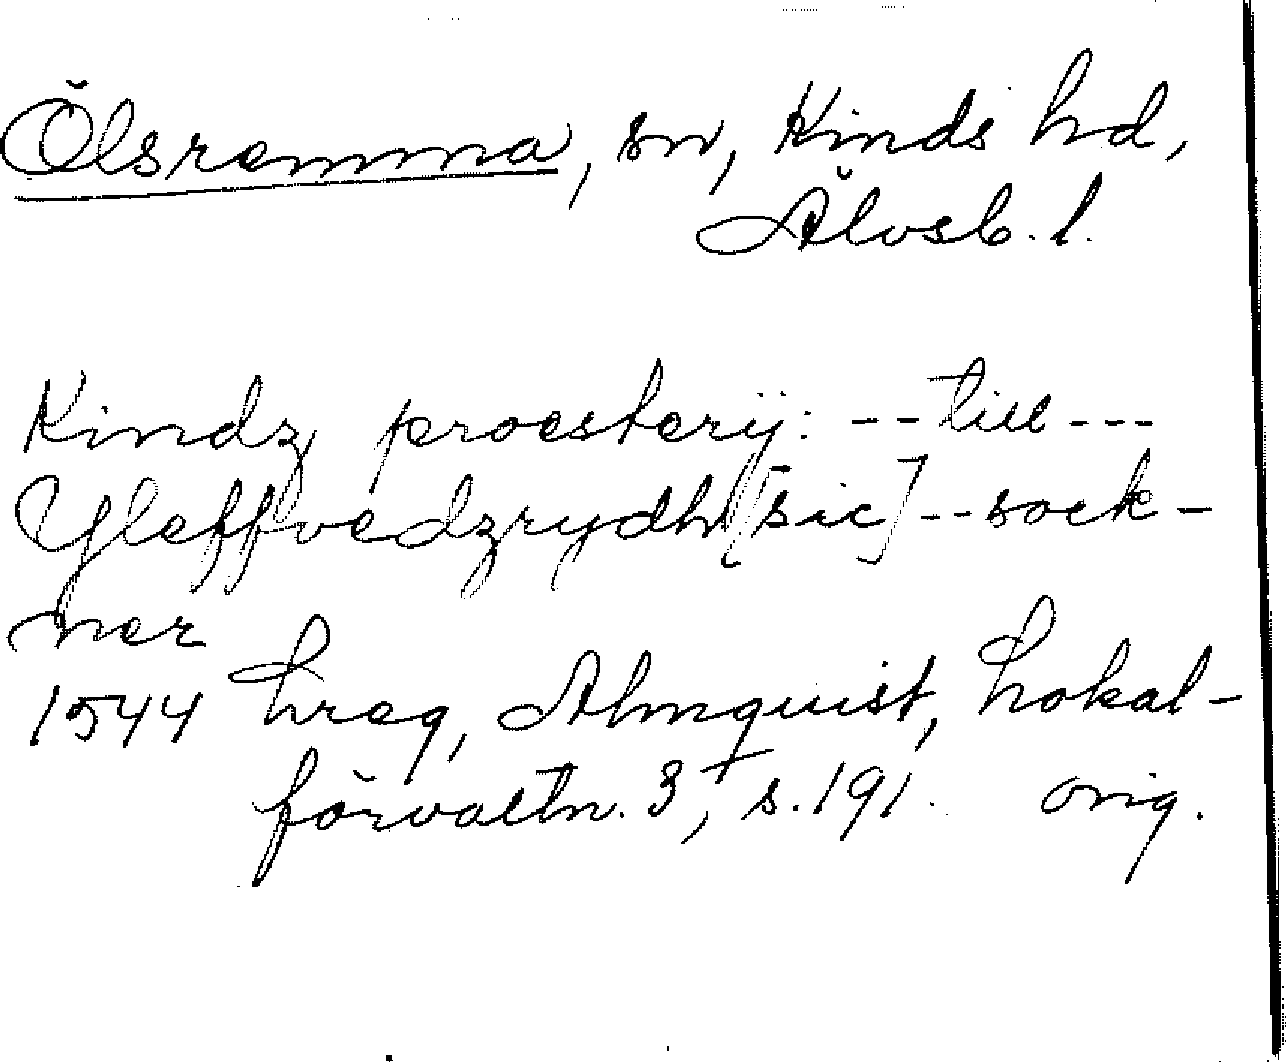 Ölsremma, sn, Kinds hd,
Älvsb. l.
Kindz proesterij: -- till ---
Yleffvedzrydh [sic] -- sock-
ner
1544 Lreg, Almquist, Lokal-
förvaltn. 3, s. 191. orig.